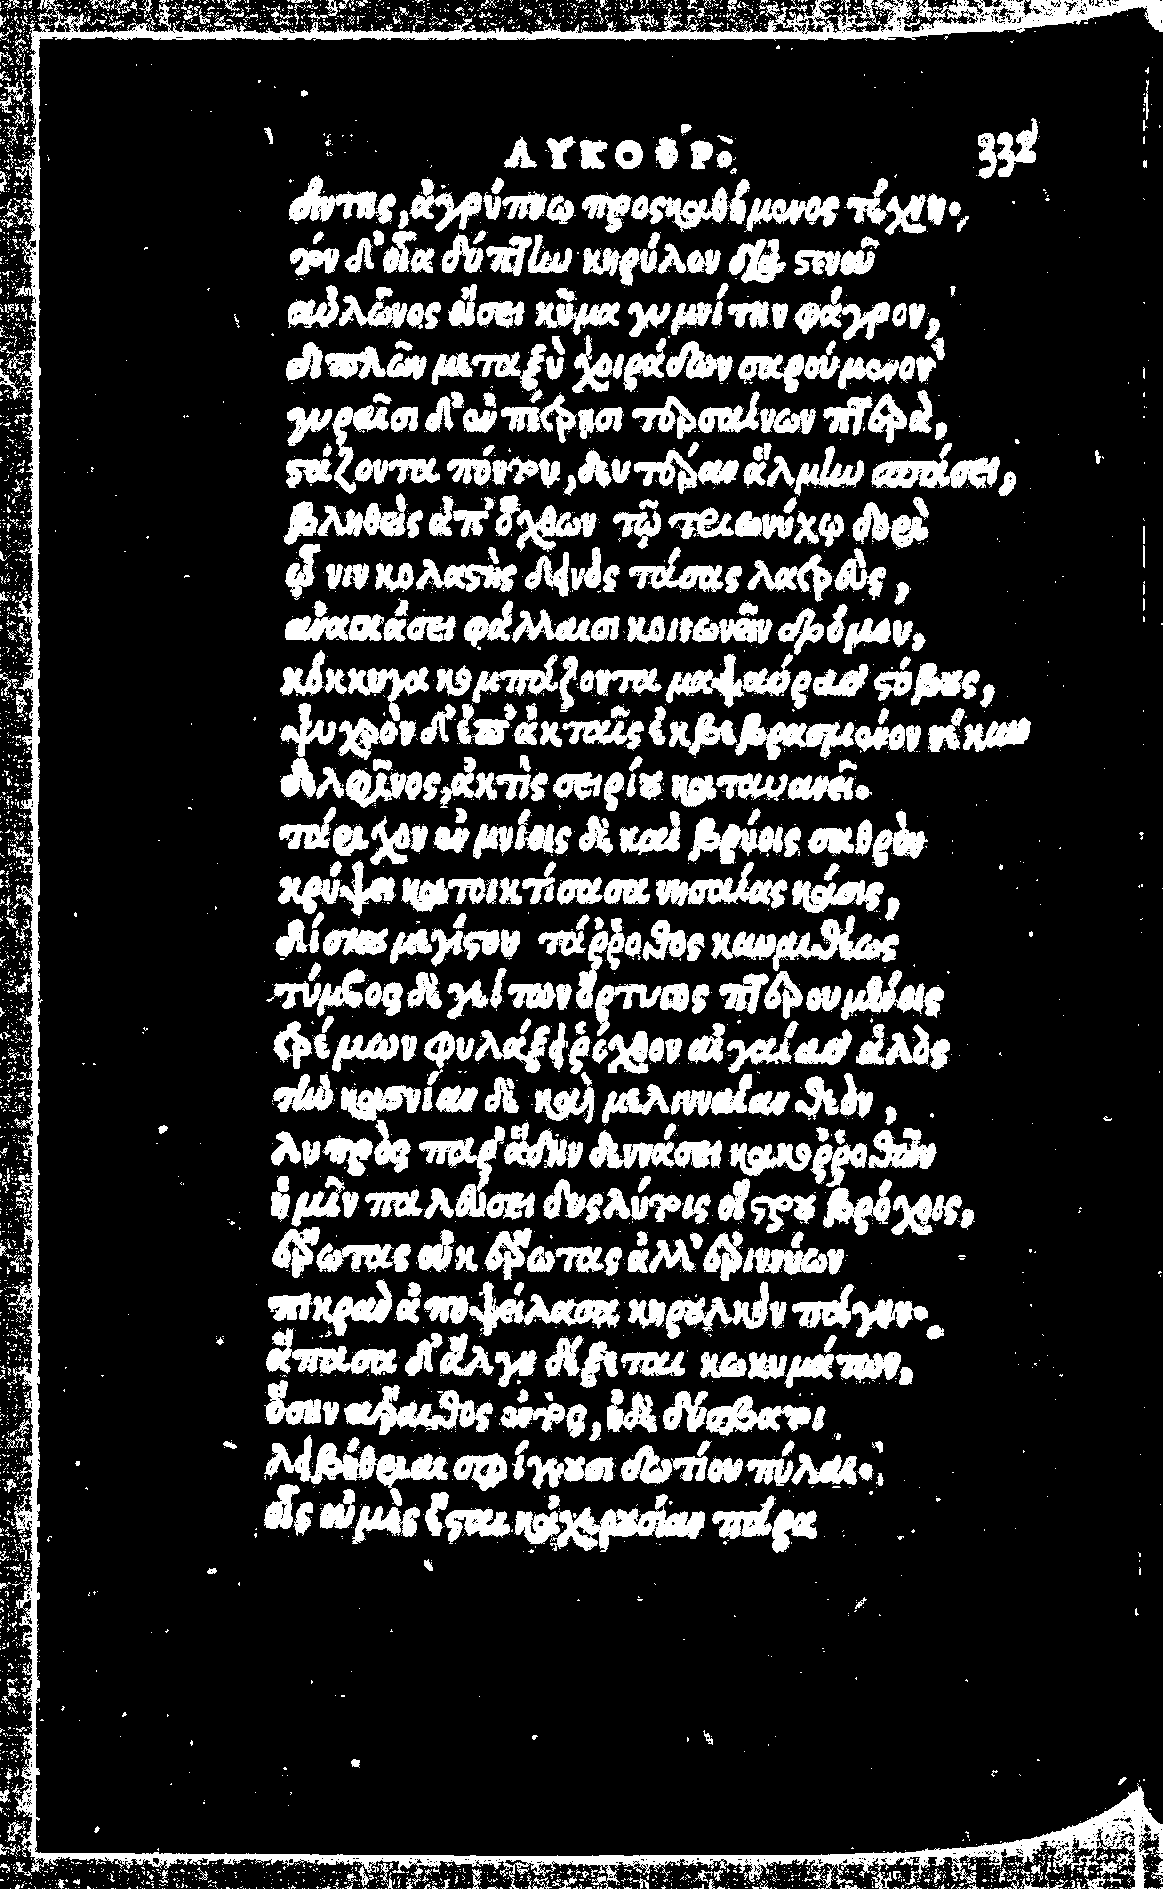 ΛΥΚΟΦΡ.
δύντης, ἀγρύπνῳ προσκαθήμενος τέχνῃ.
τὸν δ' οἷα δύπτην κηρύλον διὰ στενοῦ
αὐλῶνος οἴσει κῦμα γυμνίτην φάγρον,
διπλῶν μεταξὺ χοιράδων σαρούμενον
γυραῖσι δ' ἐν πέτρῃσι τερσαίνων πτερὰ,
στάζοντα πόντου, δευτέραν ἅλμην σπάσει,
βληθεὶς ἀπ' ὄχθων τῷ τριωνύχῳ δορὶ
ᾧ νιν κολαστὴς δεινὸς τάσας λατρεὺς,
ἀναγκάσει φάλλαισι κοινωνεῖν δρόμου,
κόκκυγα κομπάζοντα μαψαύρας στόβους,
ψυχρὸν δ' ἐπ' ἀκταῖς ἐκβεβρασμένον νέκυν
δελφῖνος, ἀκτὶς σειρίου καταυανεῖ.
τάριχον ἐν μνίοις δὲ καὶ βρύοις σαθρὸν
κρύψει κατοικτίσασα νησαίας κάσις,
δίσκου μεγίστου τάρροθος κυναιθέως
τύμβος δὲ γείτων ὄρτυγος πετρουμένης
τρέμων φυλάξει ῥόχθον αἰγαίας ἁλὸς
τὴν καστνίαν δὲ καὶ μελινναίαν θεὸν,
λυπρὸς παρ' ἅδην δεννάσει κακορροθῶν
ἥ μιν παλεύσει δυσλύτοις οἴστρου βρόχοις,
ἔρωτας οὐκ ἔρωτας ἀλλ' ἐριννύων
πικρὰν ἀποψήλασα κηρουλκὸν πάγην.
ἅπασα δ' ἄλγη δέξεται κωκυμάτων,
ὅσην ἄραιθος ἐντὸς, ἠδὲ δύσβατοι
λειβήθριαι σφίγγουσι δωτίου πύλαι.
οἷς οὑμὸς ἔσται κἀχερουσίαν πάρα